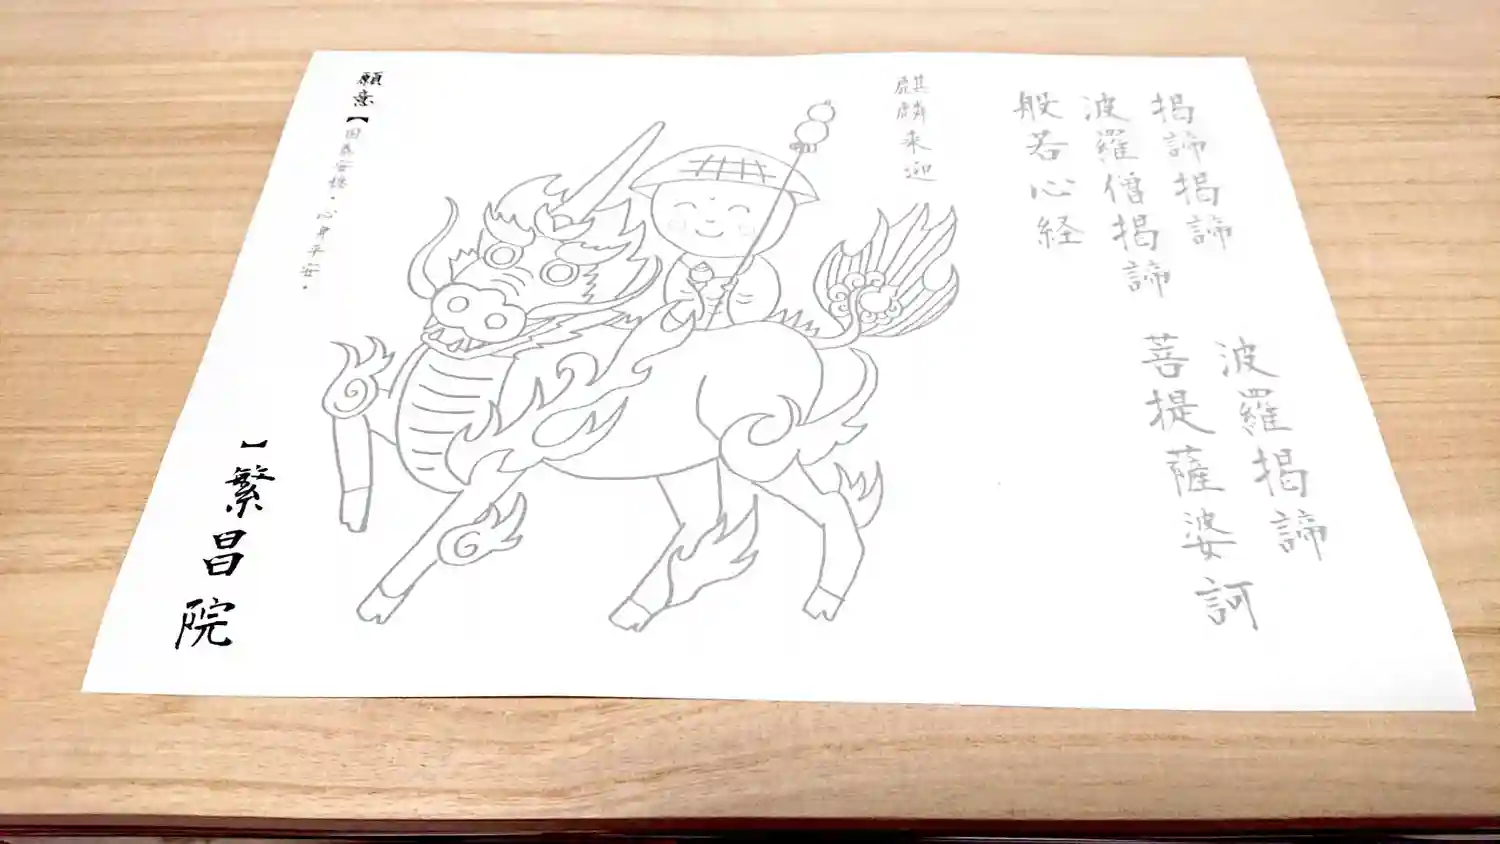 掲諦掲諦 波羅掲諦
波羅僧掲諦 菩提薩婆訶
般若心経
麒麟来迎
願意【国泰安穏・心身平安・】繁昌院